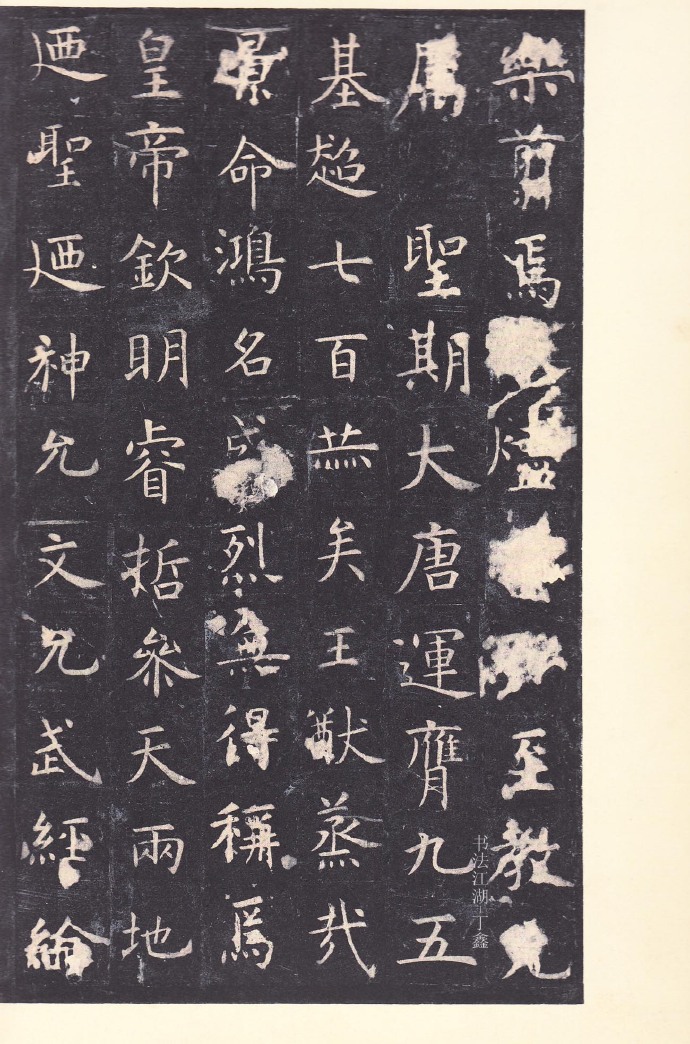 樂剪焉至教允
屬聖期大唐運膺九五
基超七百赫矣王猷蒸哉
景命鴻名盛烈無得稱焉
皇帝欽明睿哲參天兩地
迺聖迺神允文允武經綸
书法江湖丁鑫